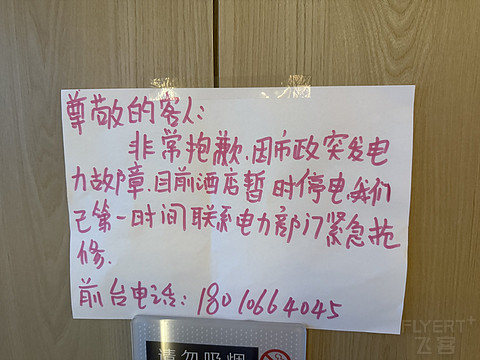 尊敬的客人:
非常抱歉,因市政突发电
力故障,目前酒店暂时停电,我们
已第一时间联系电力部门紧急抢
修.
前台电话: 18010664045
请勿吸烟
FLYERT+
飞客